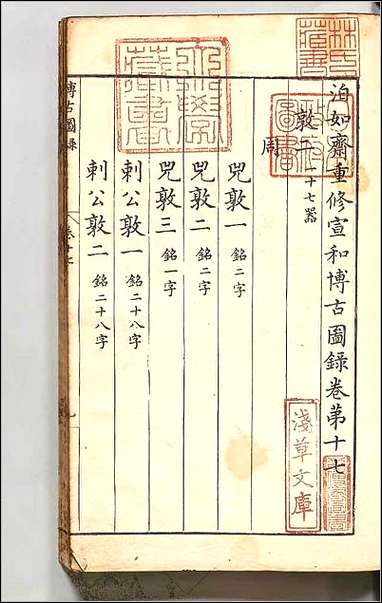 泊如齋重修宣和博古圖錄卷第十七
敦二 一十七器
周
兕敦一 銘二字
兕敦二 銘二字
兕敦三 銘一字
刺公敦一 銘二十八字
刺公敦二 銘二十八字
博古圖錄
卷十七
林氏藏書
淺草文庫